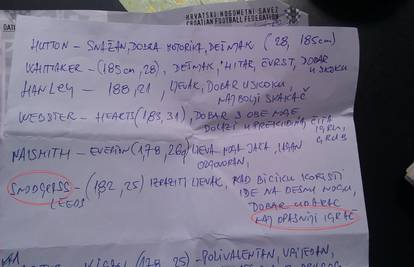 HRVATSKI NOGOMETNI SAVEZ
CROATIAN FOOTBALL FEDERATION
HUTTON - SNAŽAN, DOBRA MOTORIKA, DEŠNJAK (28, 185cm)
WHITTAKER - (185cm, 28), DEŠNJAK, HITAR, ČVRST, DOBAR
U SKOKU
HANLEY - 188, 21, LJEVAK, DOBAR U SKOKU,
NAJBOLJI SKAKAČ
WEBSTER - HEARTS (183, 31), DOBAR S OBE NOGE
DOLAZI U PREKIDIMA, ČITA
IGRU,
GRUB
NAISMITH - EVERTON (178, 26g) LJEVA NOGA JAČA, UGAN
ODGOVORAN,
SNODGRASS - (182, 25) IZRAZITI LJEVAK, RAD BICIKLU KORISTI
LEEDS
IDE NA DESNU NOGU,
DOBAR UDARAC
NAJOPASNIJI IGRAČ
(178, 25) - POLIVALENTAN, VRIJEDAN,